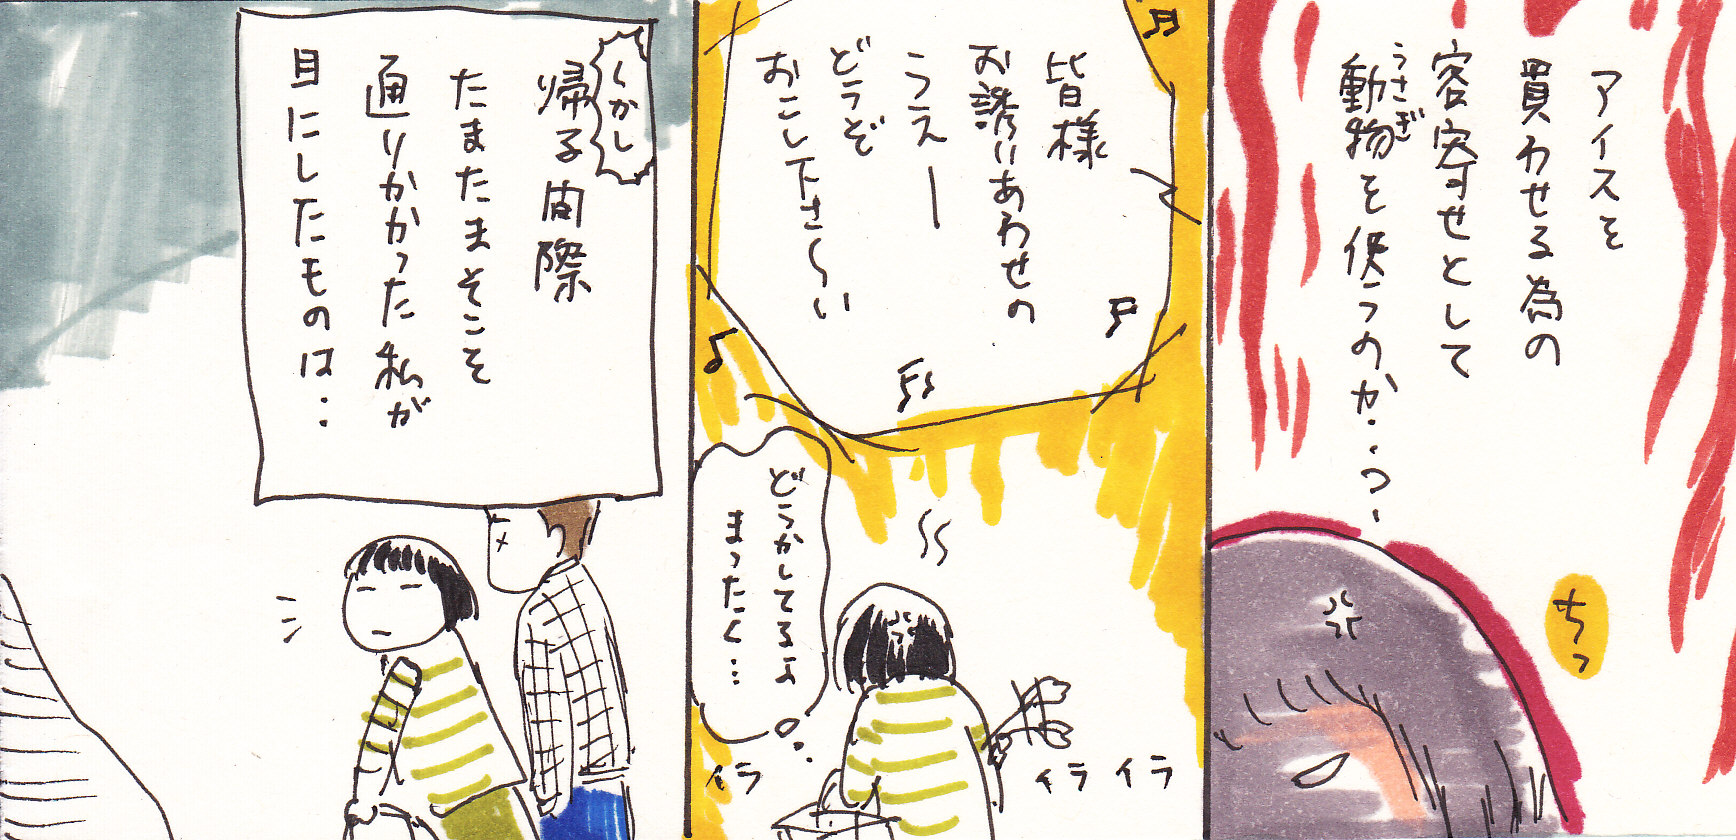 アイスを
買わせる為の
客寄せとして
動物を使うのか・・っ・
うさぎ
ちっ
皆様
お誘いあわせの
うえー
どうぞ
おこし下さ〜い
どうかしてるよ
まったく…
イラ
イライラ
しかし
帰る間際
たまたまそこを
通りかかった私が
目にしたものは・・